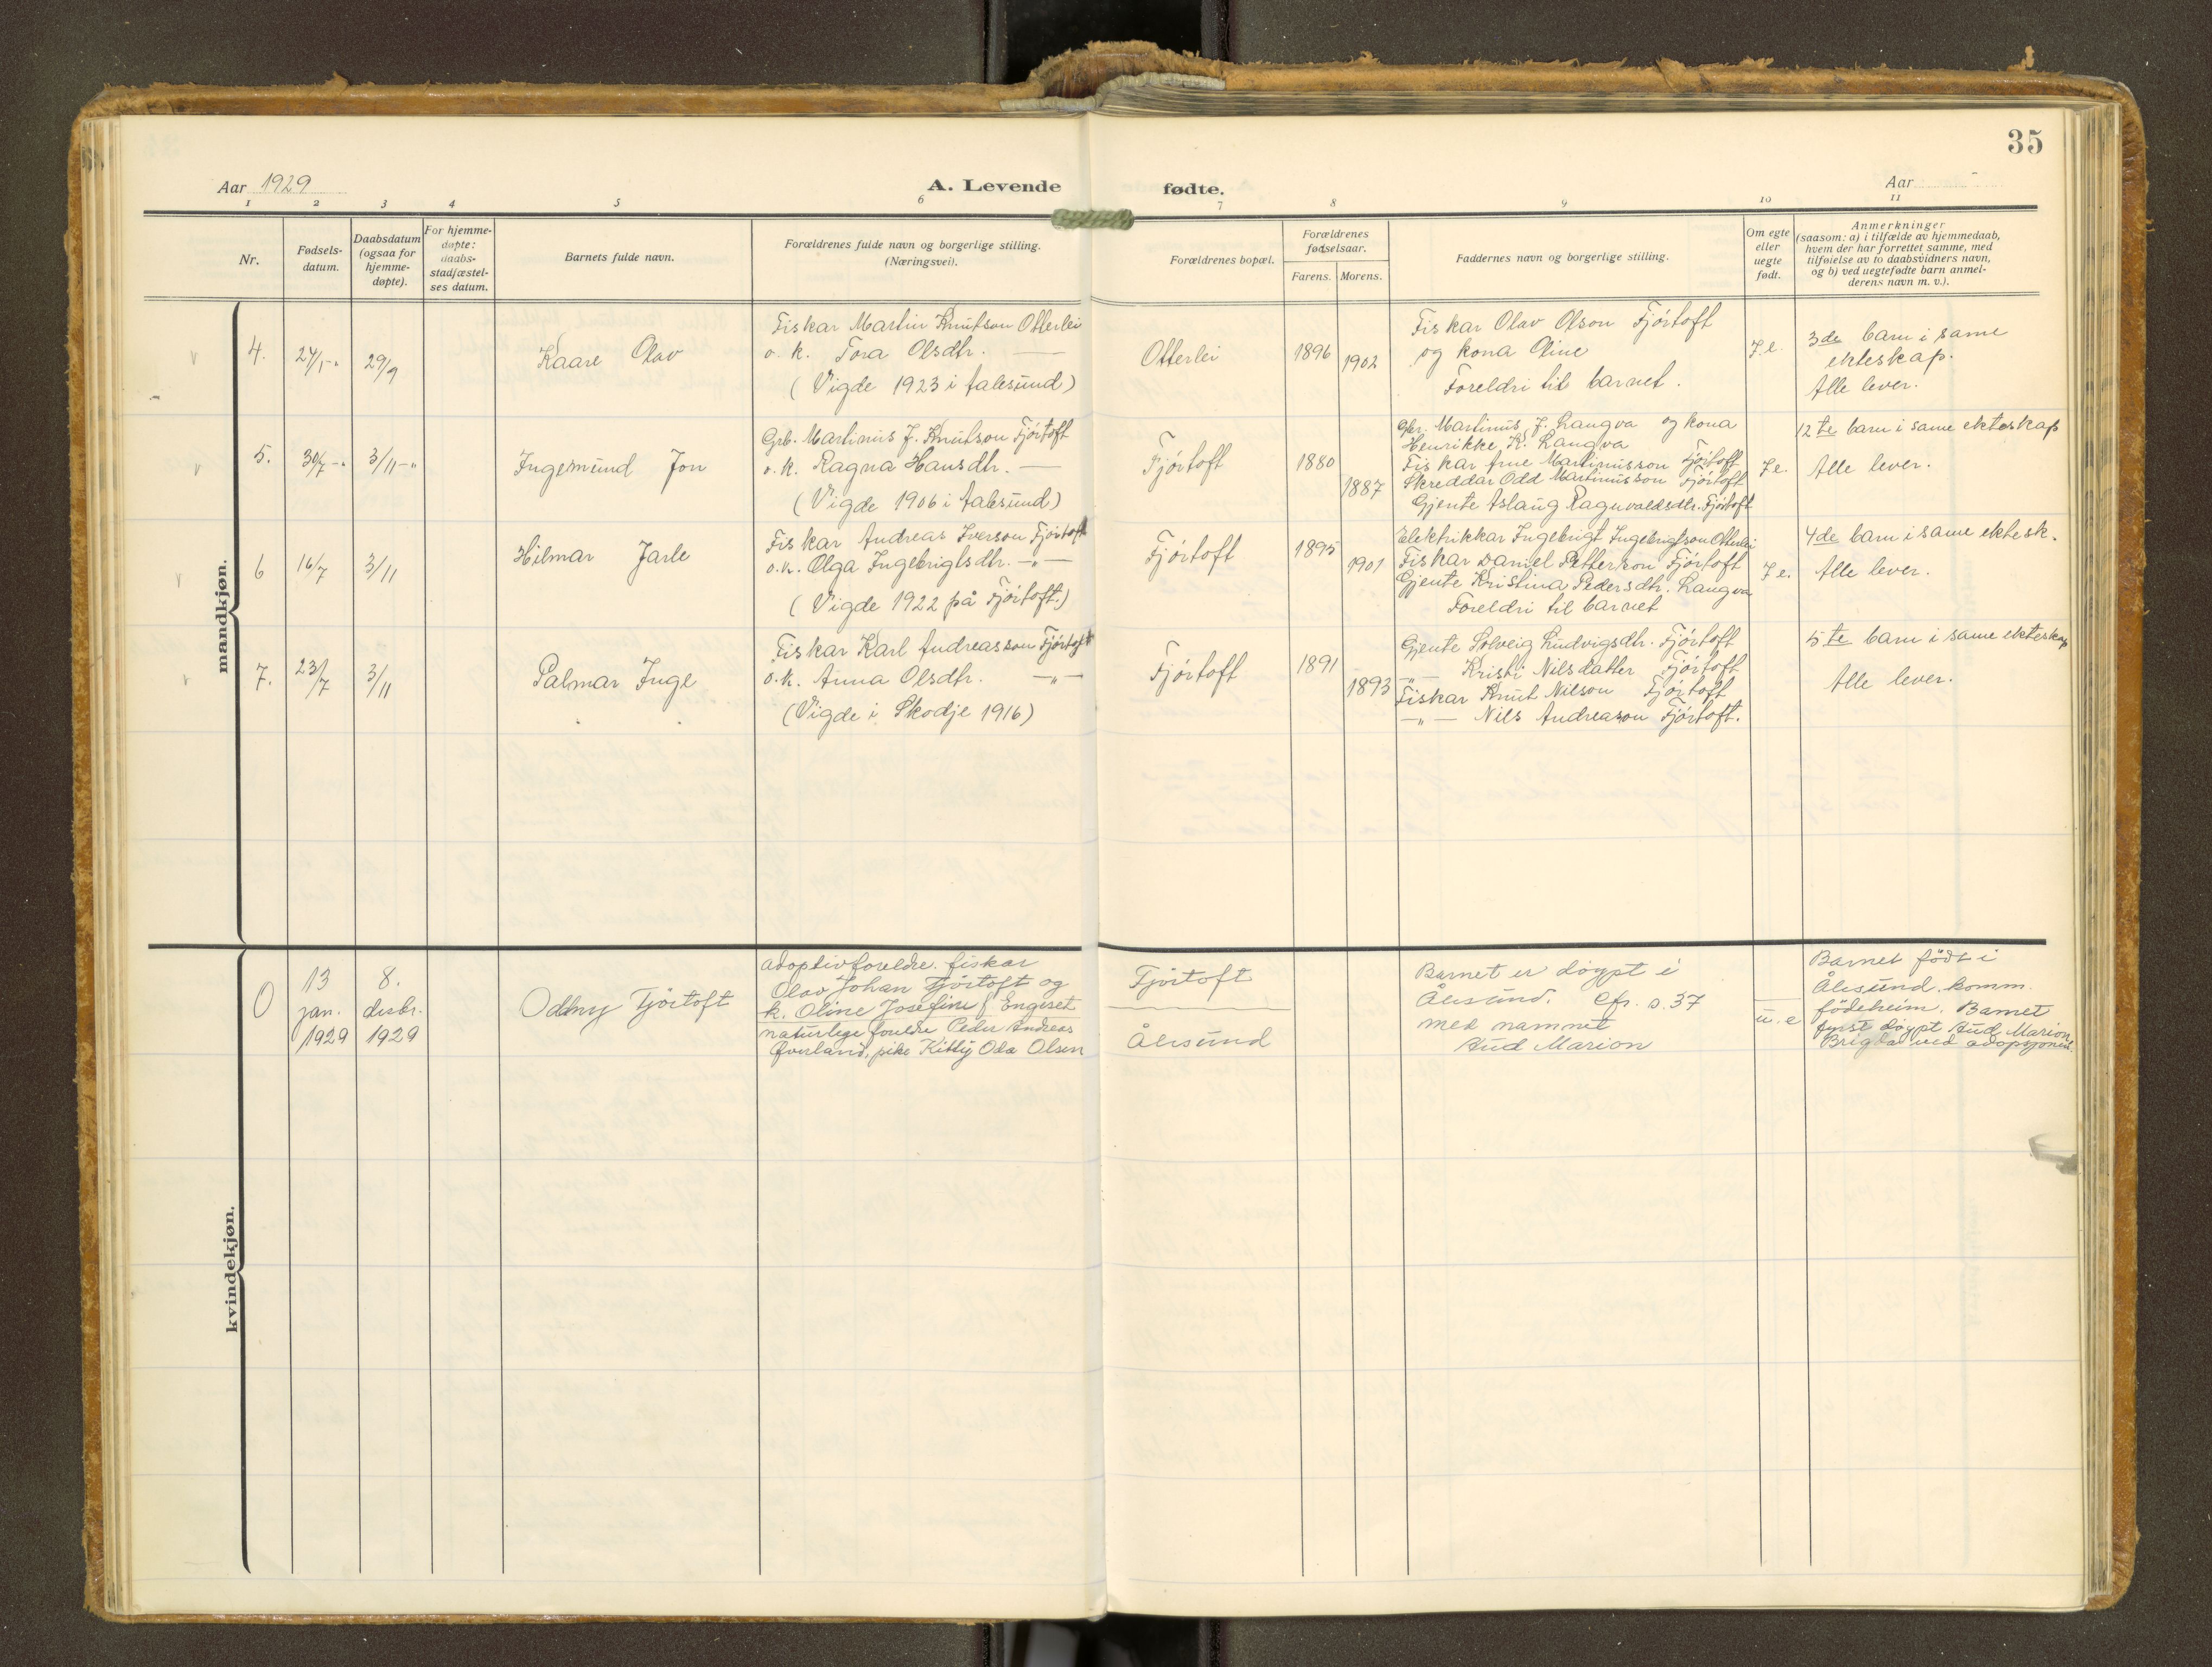 35
Aar 1929
A. Levende fødte.
Aar
1 2 3 4 5 6 7 8 9 10 11
Nr.
Fødsels-
datum.
Daabsdatum
(ogsaa for
hjemme-
døpte).
For hjemme-
døpte:
daabs-
stadfæstel-
ses datum.
Barnets fulde navn.
Forældrenes fulde navn og borgerlige stilling.
(Næringsvei).
Forældrenes bopæl.
Forældrenes
fødselsaar.
Farens. Morens.
Faddernes navn og borgerlige stilling.
Om egte
eller
uegte
født.
Anmerkninger
(saasom: a) i tilfælde av hjemmedaab,
hvem der har forrettet samme, med
tilføielse av to daabsvidners navn,
og b) ved uegtefødte barn anmel-
derens navn m. v.).
mandkjøn.
4.
29/9
Kaare Olav
Fiskar Martin Knutson Otterlei
o. k. Tora Olsdtr. —
(Vigde 1923 i Aalesund)
Otterlei
1896
1902
Fiskar Olav Olson Fjörtoft
og kona Oline
Foreldri til barnet.
J. e.
3de barn i same
ekteskap.
Alle lever.
5.
30/7 -"
3/11 -"
Ingemund Jon
Grb. Martinus J. Knutson Fjörtoft
o. k. Ragna Hansdtr. —
(Vigde 1906 i Aalesund)
Fjörtoft
1880
1887
Gbr. Martinus J. Langva og kona
Henrikke K. Langva
Fiskar Arne Martinusson Fjörtoft
Skreddar Odd Martinusson Fjörtoft
Gjente Aslaug Ragnvaldsdtr. Fjörtoft
J e.
12te barn i same ekteskap
Alle lever.
6
16/7
3/11
Hilmar Jarle
Fiskar Andreas Iverson Fjörtoft
o. k. Olga Ingebrigtsdtr. —"—
(Vigde 1922 på Fjörtoft.)
Fjörtoft
1895
1901
Elektrikkar Ingebrigt Ingebrigtson Otterlei
Fiskar Daniel Petterson Fjörtoft
Gjente Kristina Pedersdtr. Langva
Foreldri til barnet
J e.
4de barn i same ektesk.
Alle lever.
7.
23/7
3/11
Palmar Inge
Fiskar Karl Andreasson Fjörtoft
o. k. Anna Olsdtr. —"—
(Vigde i Skodje 1916)
Fjörtoft
1891
1893
Gjente Solveig Ludvigsdtr. Fjörtoft
—"— Kristi Nilsdatter Fjörtoft
Fiskar Knut Nilson Fjörtoft
—"— Nils Andreason Fjörtoft.
5te barn i same ekteskap
Alle lever.
kvindekjøn.
0
13
jan.
1929
8.
desbr.
1929
Oddny Fjörtoft
adoptivforeldre. fiskar
Olav Johan Fjörtoft og
k. Oline Josefine f. Engeset
naturlege foreldre Peder Andreas
Överland, pike Kitty Oda Olsen
Fjörtoft
Ålesund
Barnet er döypt i
Ålesund. Cfr. s. 37
med namnet
Aud Marion
u. e
Barnet födt i
Ålesund. komm.
födeheim. Barnet
fyrst döypt Aud Marion
Brigda ved adopsjonen.